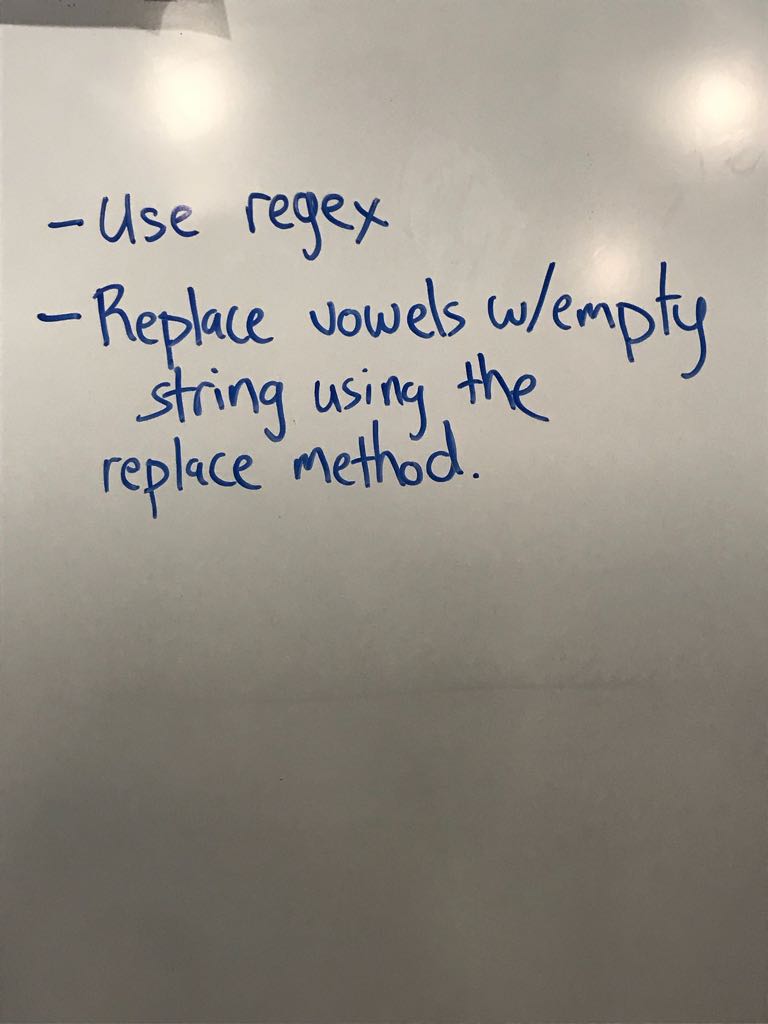 - Use regex
- Replace vowels w/empty
string using the
replace method.